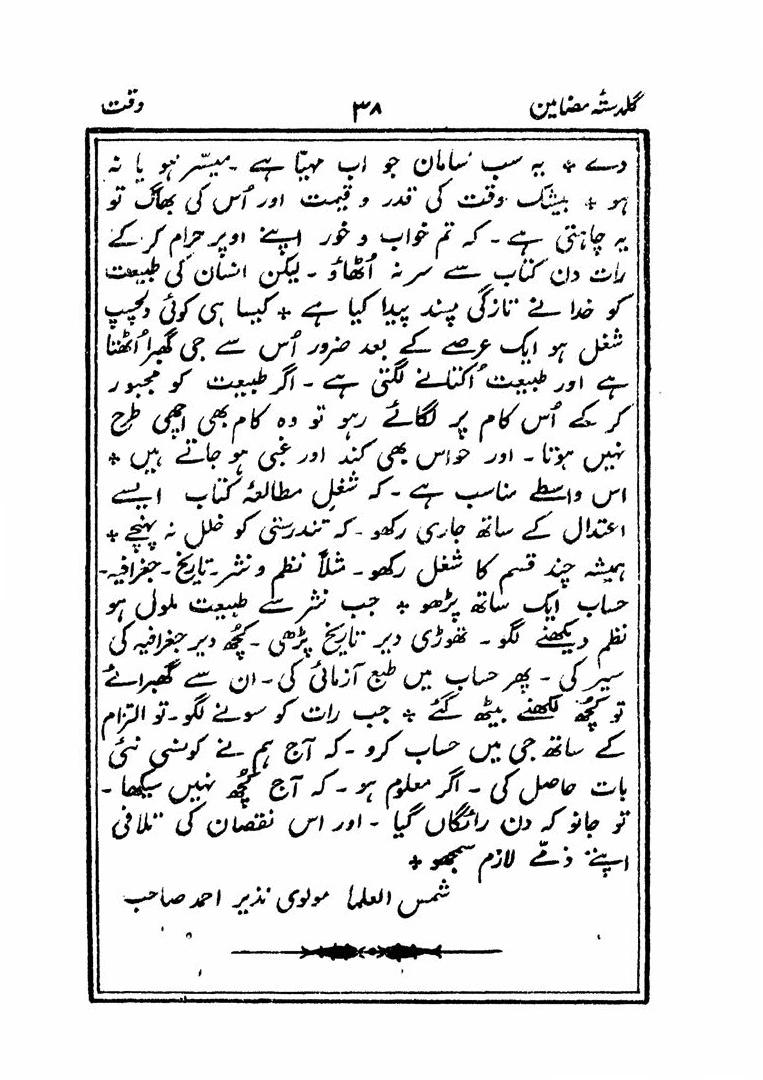 گلدستۂ مضامین ۳۸ وقت
دے * یہ سب سامان جو اب مہیّا ہے ۔ میسّر ہو یا نہ
ہو * بیشک وقت کی قدر و قیمت اور اُس کی بھاگ تو
یہ چاہتی ہے ۔ کہ تم خواب و خور اپنے اوپر حرام کر کے
رات دن کتاب سے سر نہ اُٹھاؤ ۔ لیکن انسان کی طبیعت
کو خدا نے تازگی پسند پیدا کیا ہے * کیسا ہی کوئی دلچسپ
شغل ہو ایک عرصے کے بعد ضرور اُس سے جی گھبرا اُٹھتا
ہے اور طبیعت اُکتانے لگتی ہے ۔ اگر طبیعت کو مجبور
کر کے اُس کام پر لگائے رہو تو وہ کام بھی اچھی طرح
نہیں ہوتا ۔ اور حواس بھی کند اور غبی ہو جاتے ہیں *
اس واسطے مناسب ہے ۔ کہ شغلِ مطالعۂ کتاب ایسے
اعتدال کے ساتھ جاری رکھو ۔ کہ تندرستی کو خلل نہ پہنچے *
ہمیشہ چند قسم کا شغل رکھو ۔ مثلاً نظم و نثر ۔ تاریخ ۔ جغرافیہ ۔
حساب ایک ساتھ پڑھو * جب نثر سے طبیعت ملول ہو
نظم دیکھنے لگو ۔ تھوڑی دیر تاریخ پڑھی ۔ کچُھ دیر جغرافیہ کی
سیر کی ۔ پھر حساب میں طبع آزمائی کی ۔ ان سے گھبرائے
تو کچُھ لکھنے بیٹھ گئے * جب رات کو سونے لگو ۔ تو التزام
کے ساتھ جی میں حساب کرو ۔ کہ آج ہم نے کونسی نئی
بات حاصل کی ۔ اگر معلوم ہو ۔ کہ آج کچُھ نہیں سیکھا ۔
تو جانو کہ دن رائگاں گیا ۔ اور اس نقصان کی تلافی
اپنے ذمّے لازم سمجھو *
شمس العلما مولوی نذیر احمد صاحب